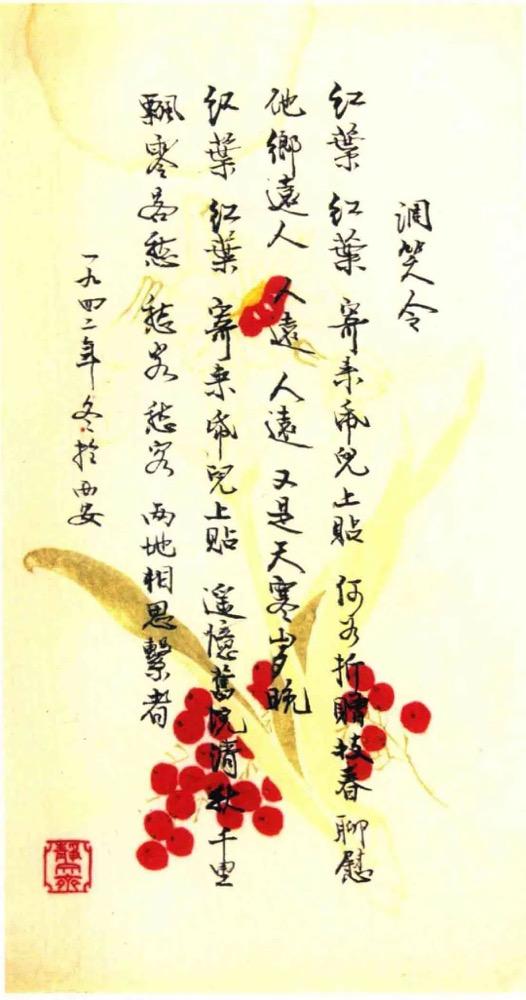 調笑令
红葉 红葉 寄来帋兒上貼 何折贈枝春 聊慰
他鄉遠人 人遠 人遠 又是天寒岁晚
红葉 红葉 寄来帋兒上貼 遥憶舊院清秋 千里
飄零客愁 愁客 愁客 两地相思繫者
一九四二年冬於西安